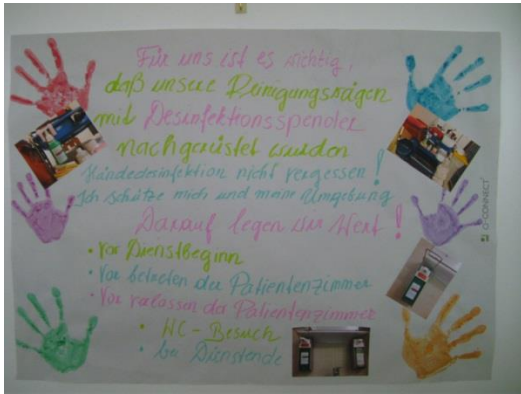 Für uns ist es wichtig,
daß unsere Reinigungswägen
mit Desinfektionsspender
nachgerüstet wurden
Händedesinfektion nicht vergessen!
Ich schütze mich und meine Umgebung
Darauf legen wir Wert!
• Vor Dienstbeginn
• Vor betreten der Patientenzimmer
• Vor valassen der Patientenzimmer
• WC-Besuch
• bei Dienstende
O-CONNECT